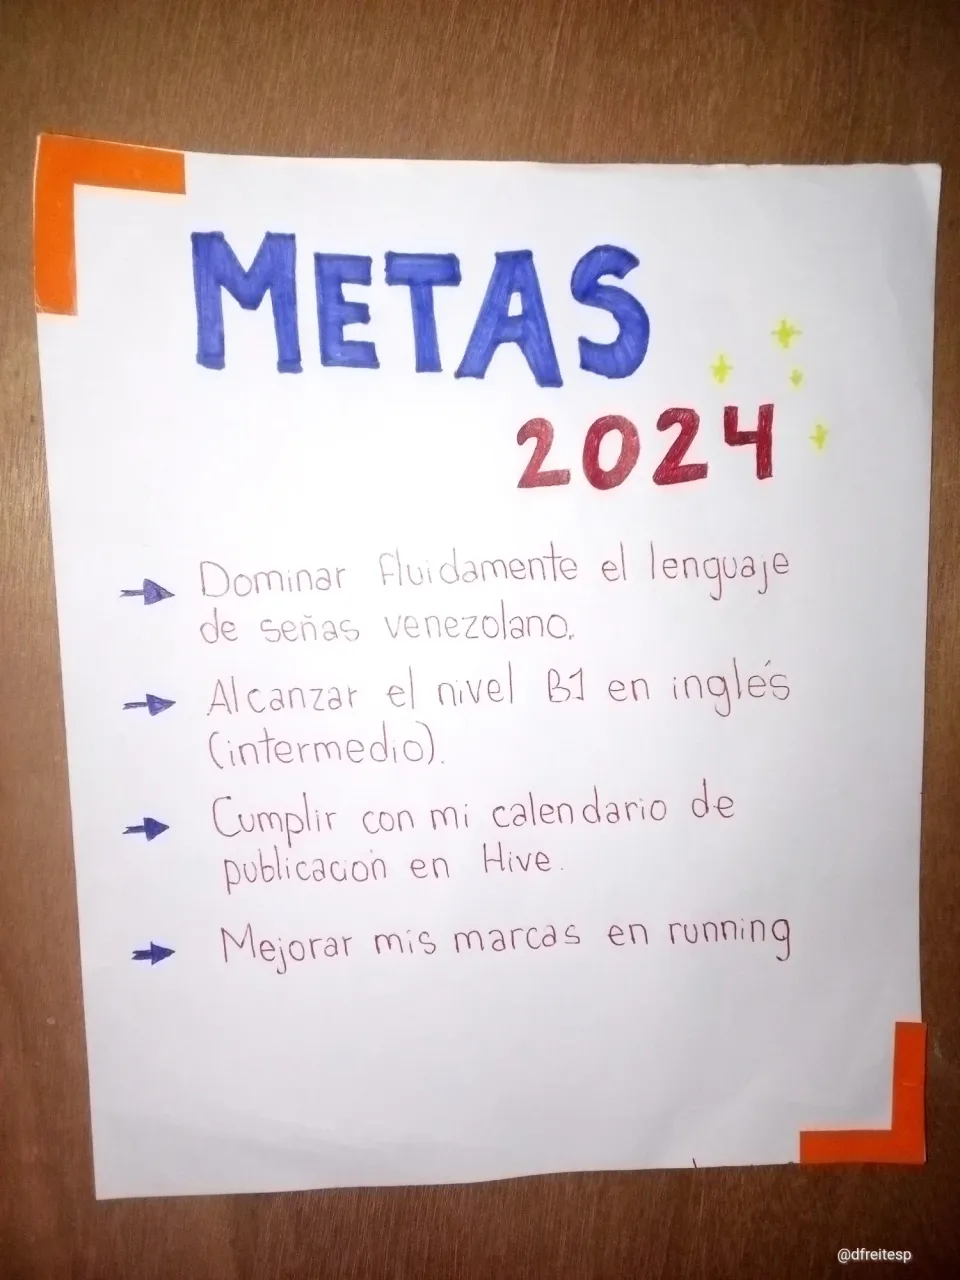 METAS
2024
Dominar fluidamente el lenguaje
de señas venezolano.
Alcanzar el nivel B1 en inglés
(intermedio).
Cumplir con mi calendario de
publicación en Hive.
Mejorar mis marcas en running
@dfreitesp